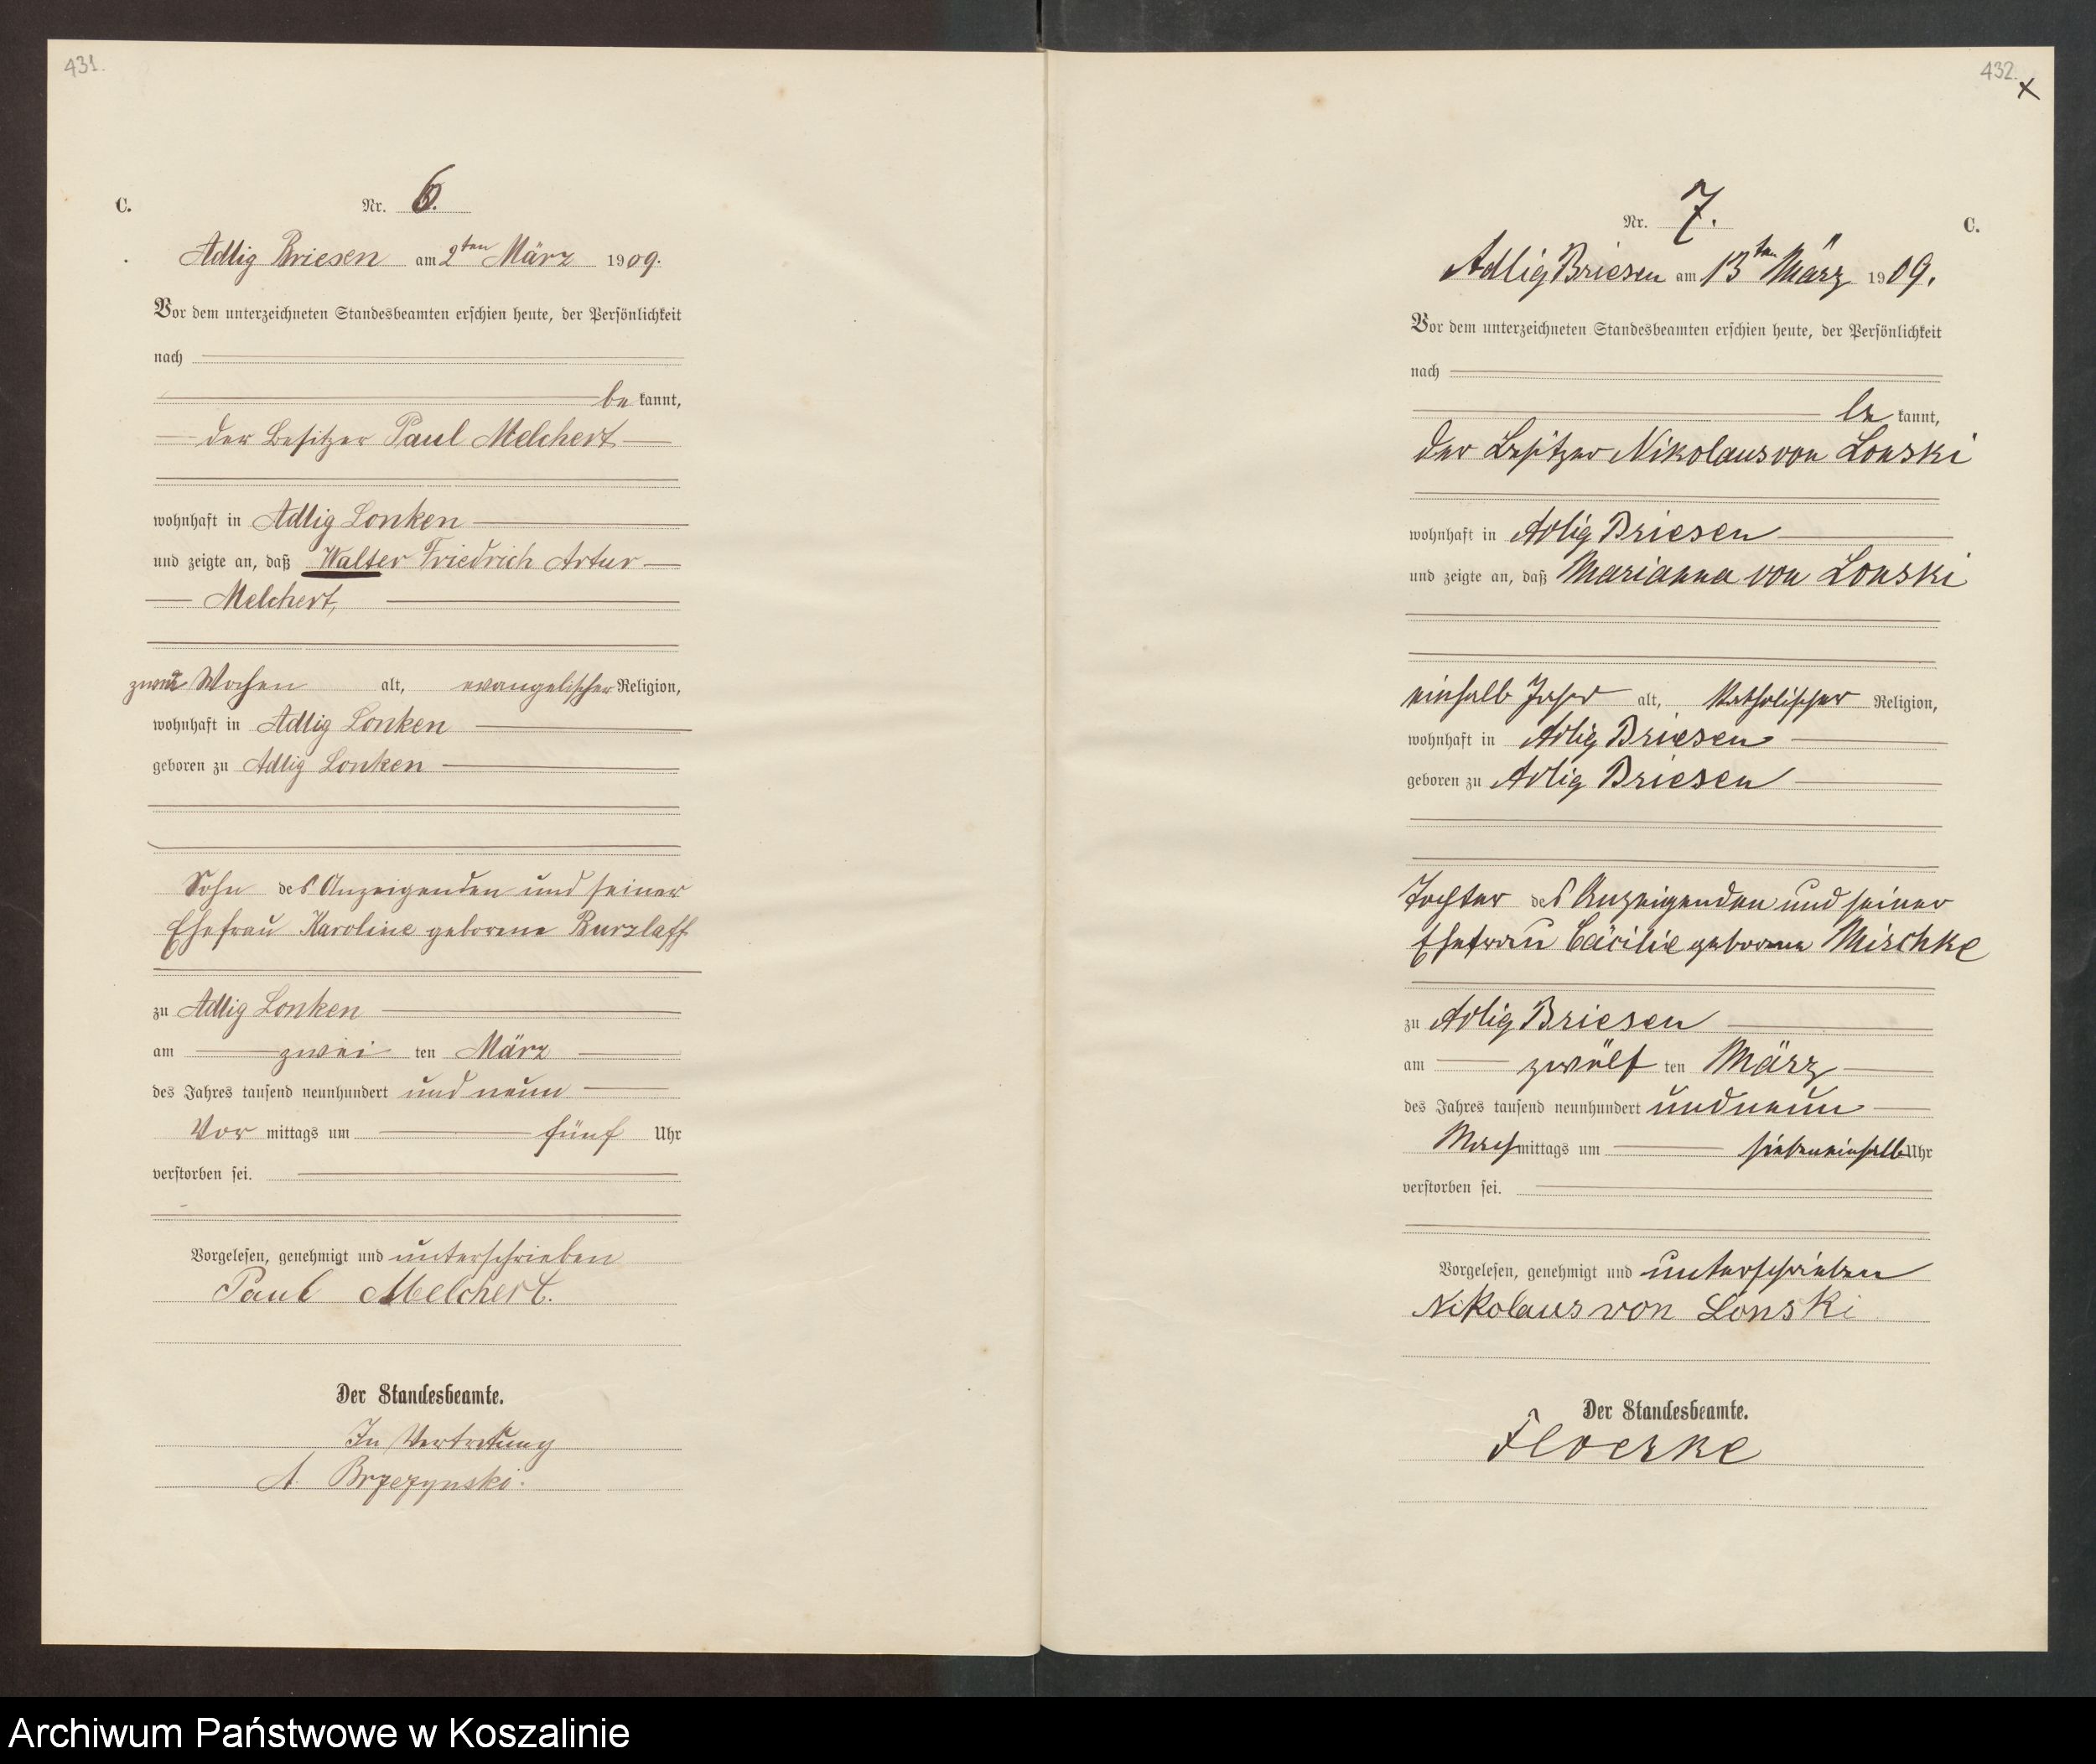 431.
C.
Nr. 6.
Adlig Briesen am 2ten März 1909.
Vor dem unterzeichneten Standesbeamten erschien heute, der Persönlichkeit
nach
be kannt,
der Besitzer Paul Melchert
wohnhaft in Adlig Lonken
und zeigte an, daß Walter Friedrich Artur
Melchert,
zwei Wochen alt, evangelischer Religion,
wohnhaft in Adlig Lonken
geboren zu Adlig Lonken
Sohn des Anzeigenden und seiner
Ehefrau Karoline geborene Burzlaff
zu Adlig Lonken
am zwei ten März
des Jahres tausend neunhundert und neun
Vor mittags um fünf Uhr
verstorben sei.
Vorgelesen, genehmigt und unterschrieben
Paul Melchert.
Der Standesbeamte.
In Vertretung
A. Brzezynski.
432.
Nr. 7.
C.
Adlig Briesen am 13ten März 1909.
Vor dem unterzeichneten Standesbeamten erschien heute, der Persönlichkeit
nach
be kannt,
der Besitzer Nikolaus von Lonski
wohnhaft in Adlig Briesen
und zeigte an, daß Marianna von Lonski
einhalb Jahr alt, katholischer Religion,
wohnhaft in Adlig Briesen
geboren zu Adlig Briesen
Tochter des Anzeigenden und seiner
Ehefrau Cäcilie geborene Mischke
zu Adlig Briesen
am zwölf ten März
des Jahres tausend neunhundert und neun
Nach mittags um siebeneinhalb Uhr
verstorben sei.
Vorgelesen, genehmigt und unterschrieben
Nikolaus von Lonski
Der Standesbeamte.
Floerke
Archiwum Państwowe w Koszalinie